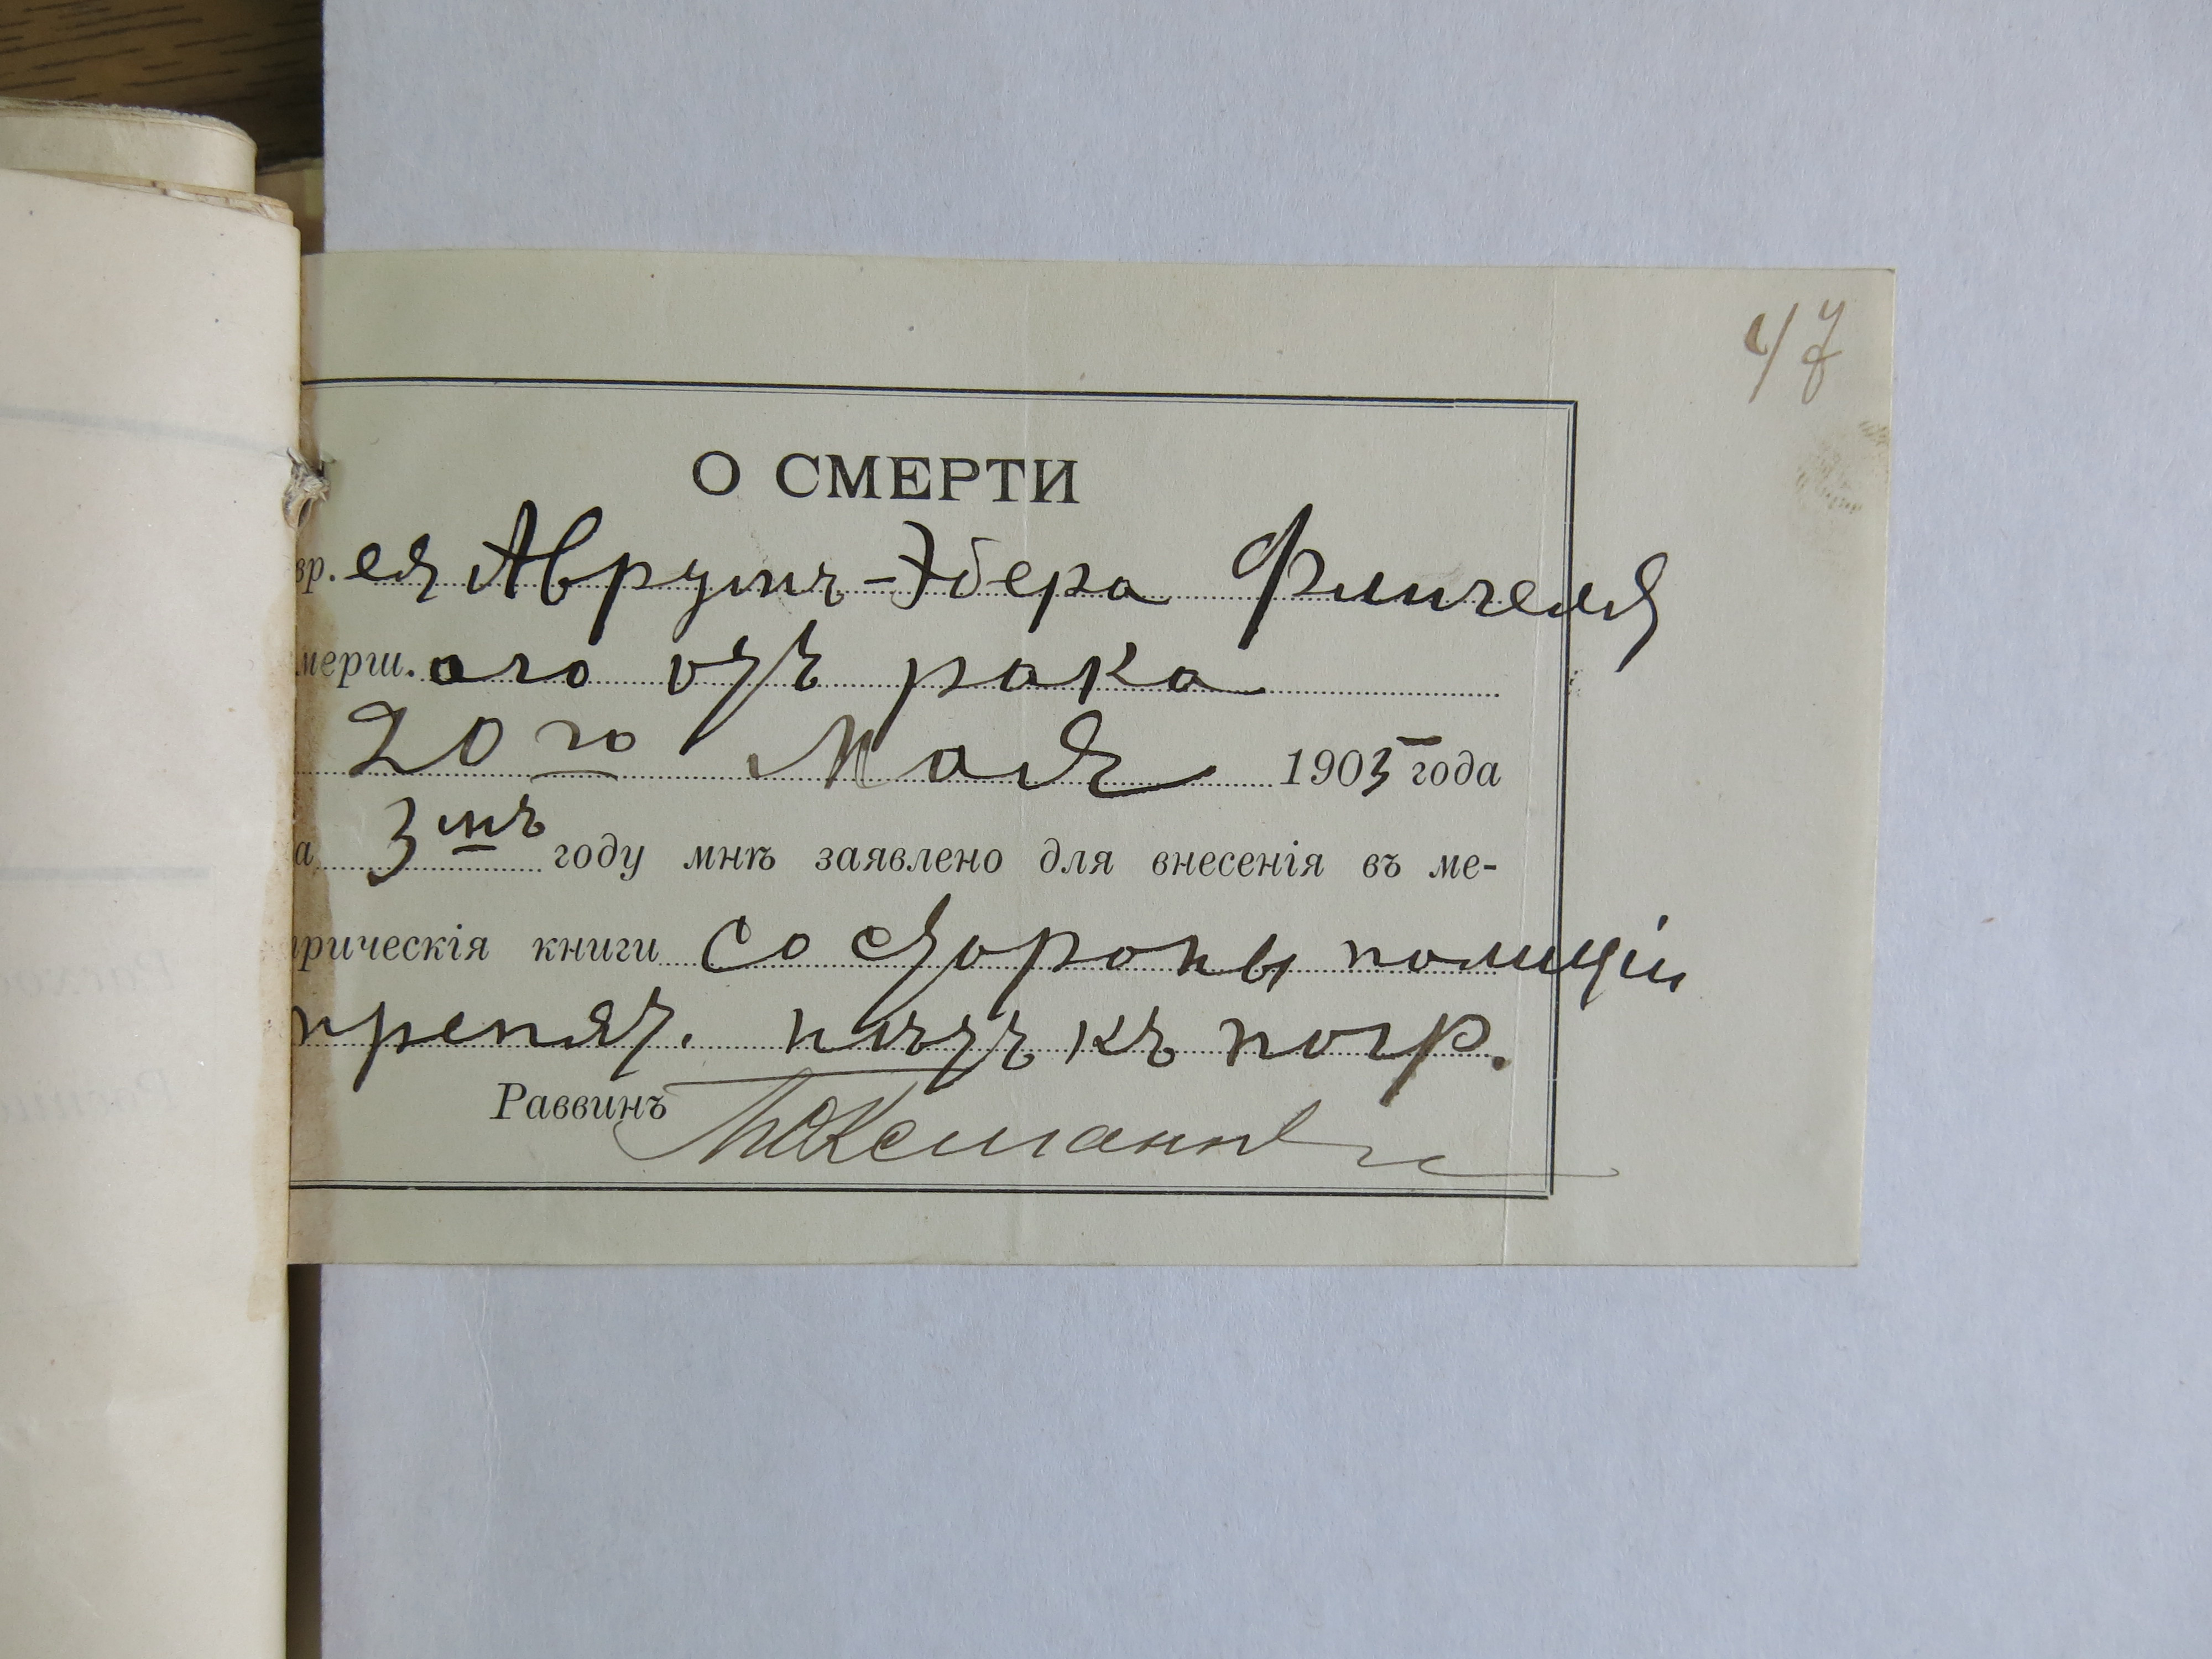 47
О СМЕРТИ
вр. ея Аврумъ-Эбера
мерш. аго отъ рака
20го Мая 1903 года
а 3мъ году мнѣ заявлено для внесенія въ ме-
рическія книги со стороны полиціи
препят. нѣтъ къ погр.
Раввинъ